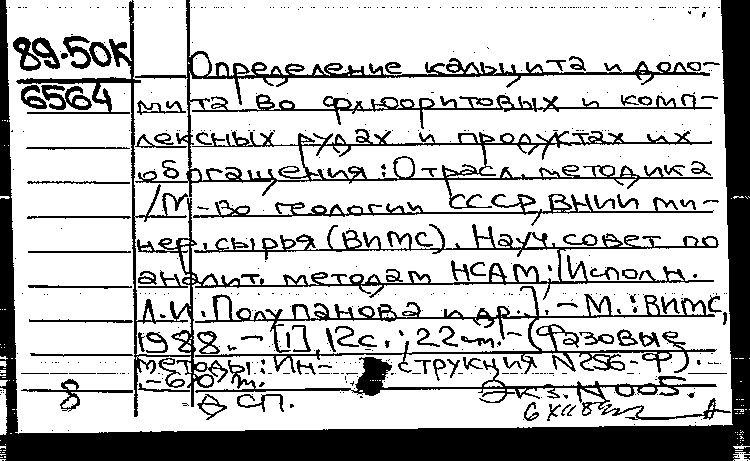 89-50К
6564
Определение кальцита и доло-
мита во флюоритовых и комп-
лексных рудах и продуктах их
обогащения: Отрасл. методика
/М-во геологии СССР, ВНИИ ми-
нер. сырья (ВИМС). Науч. совет по
аналит. методам НСАМ; [Исполн.
Л.И. Полупанова и др.]. - М.: ВИМС,
1988. - [1], 12с.; 22см. - (Фазовые
методы: Ин- струкция N 256-Ф).
.-60, т.
Экз. N 005.
8
СП.